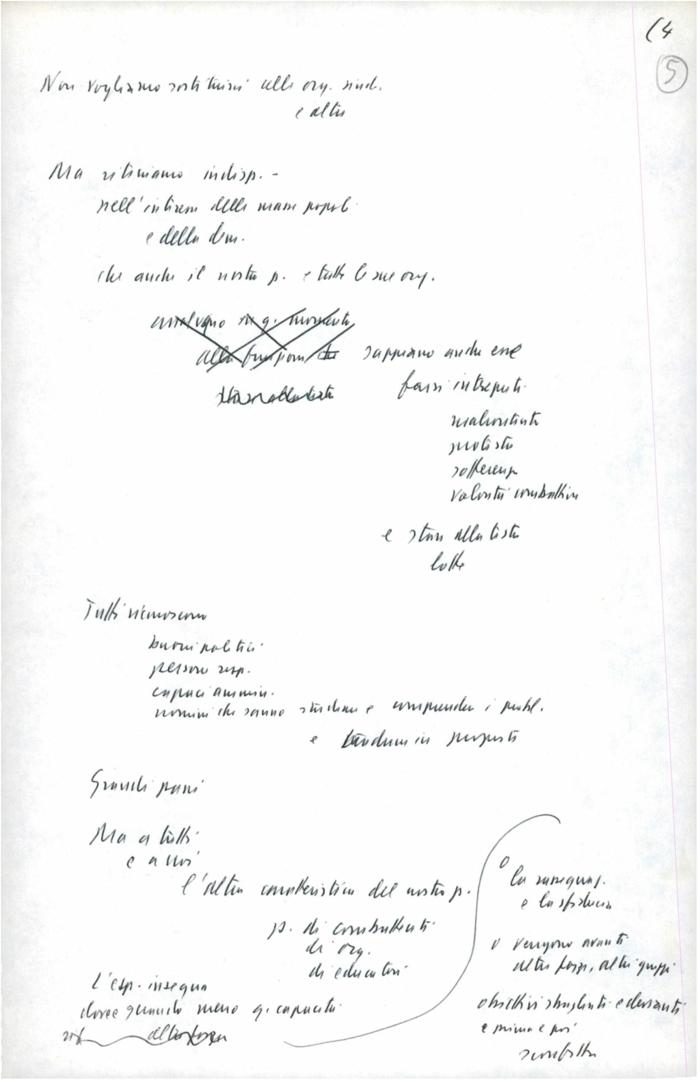 (4
5
Non vogliamo sostituirci alle org. sind.
e altre
Ma riteniamo indisp. -
nell'interesse delle masse popol.
e della dem.
che anche il nostro p. e tutte le sue org.
in q. momento
alla funzione
sappiano anche esse
farsi interpreti
malcontento
protesta
sofferenze
volontà combattiva
e stare alla testa
lotte
Tutti riconoscono
buoni politici
persone resp.
capaci ammin.
uomini che sanno studiare e comprendere i probl.
e tradurre in proposte
Grandi passi
Ma a tutti
e a noi
l'altra caratteristica del nostro p.
p. di combattenti
di org.
di educatori
L'esp. insegna
dove quando meno q. capacità
o la rassegnaz.
e la sfiducia
o vengono avanti
altre forze, altri gruppi
obiettivi sbagliati e devianti
e prima e poi
sconfitta